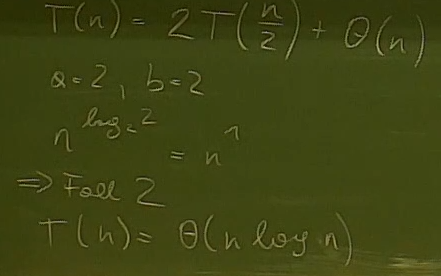 T(n) = 2T(n/2) + Θ(n)
a=2, b=2
n^{log_2 2} = n^1
⇒ Fall 2
T(n) = Θ(n log n)